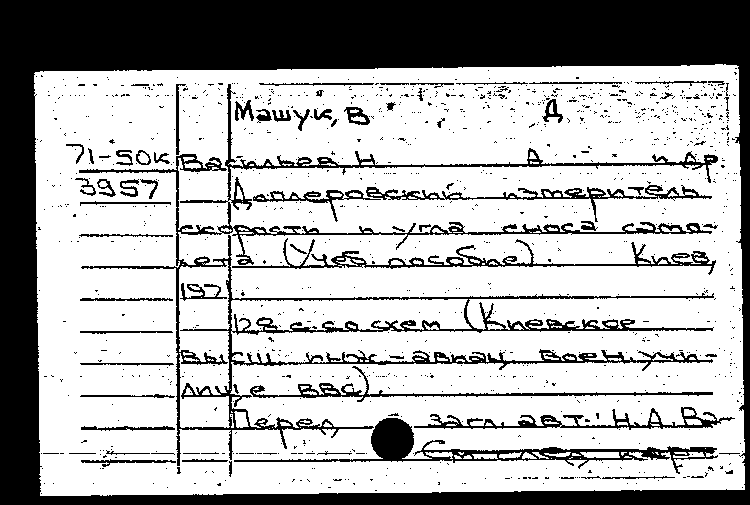 Машук, В Д
71-50к Васильев, Н А и др.
3957 Доплеровский измеритель
скорости и угла сноса само-
лета. (Учеб. пособие). Киев,
1971.
128 с. со схем (Киевское
высш. инж-авиац. воен. учи-
лище ВВС).
Перед загл. авт.: Н.А. Ва-
См. след карт